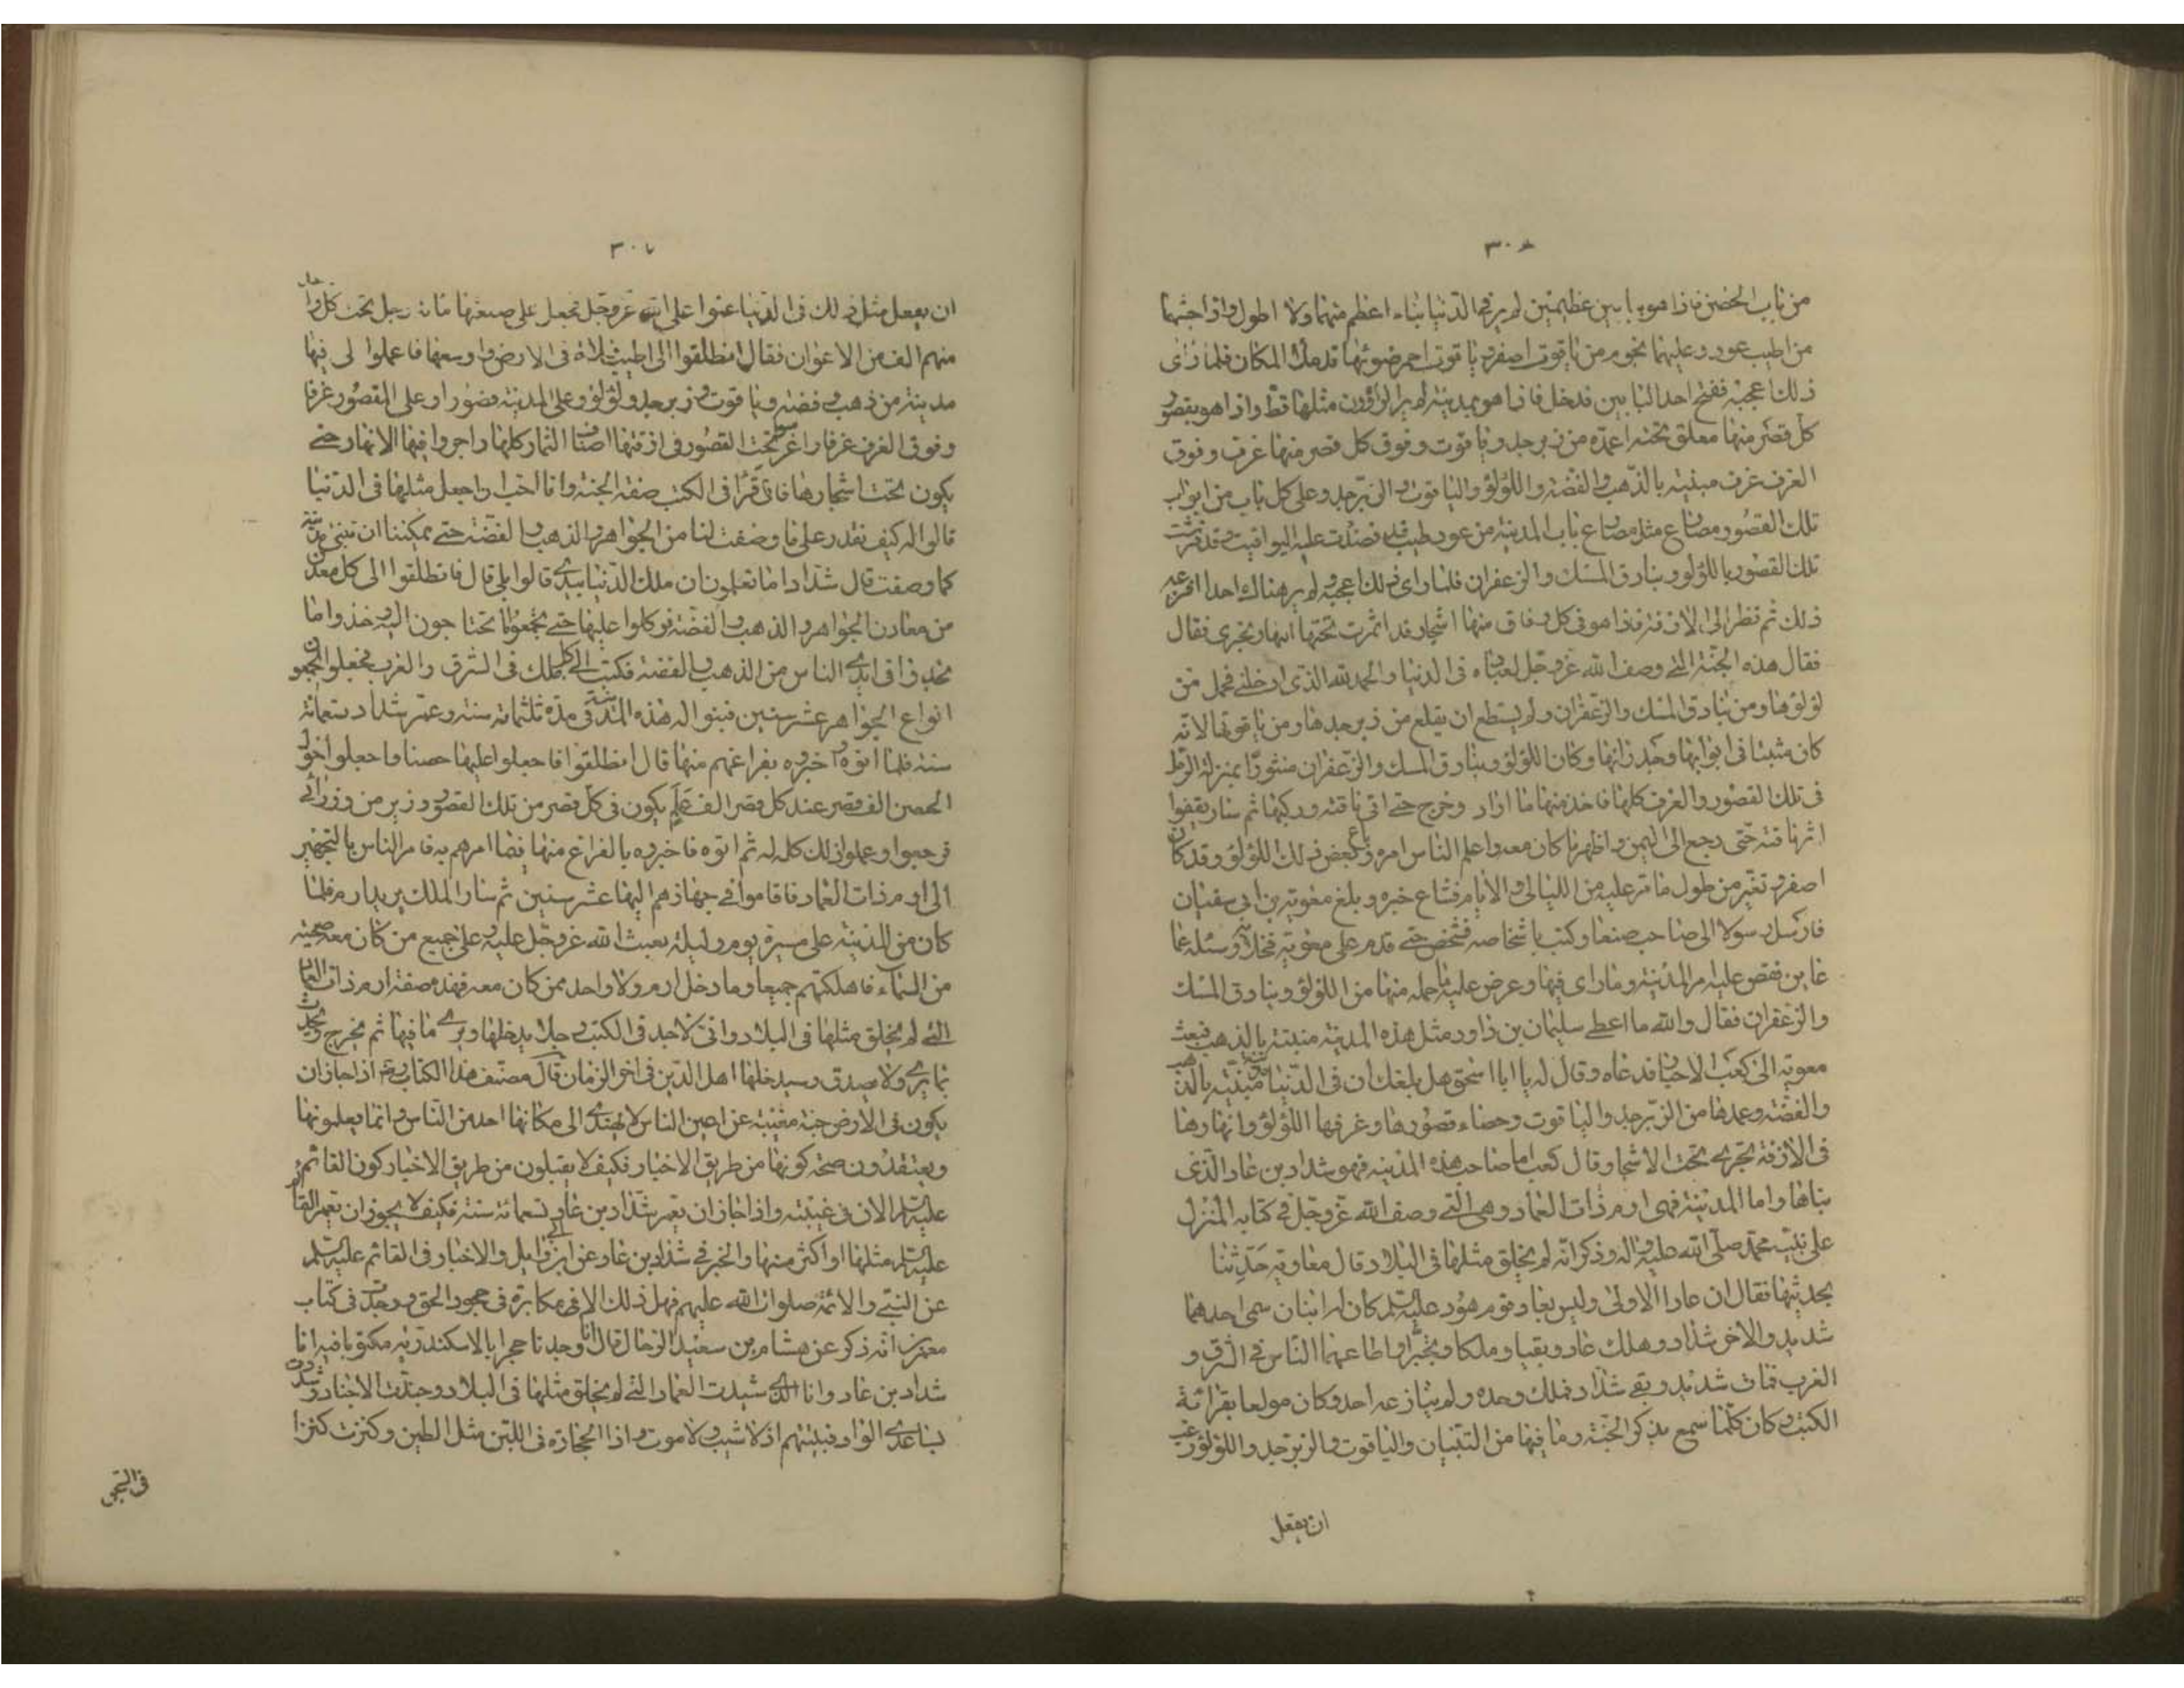 ٣٠٨
من باب الحصن فاذا هو ببابين عظيمين لم ير في الدنيا بناء اعظم منهما ولا اطول واذا خشبهما
من اطيب عود وعليهما نجوم من ياقوت اصفر وياقوت احمر ضوئها قد ملأ المكان فلما راى
ذلك اعجبه ففتح احد البابين فدخل فاذا هو بمدينة لم ير الراؤون مثلها قط واذا هو بقصور
كل قصر منها معلق تحته اعمدة من زبرجد وياقوت وفوق كل قصر منها غرف وفوق
الغرف غرف مبنية بالذهب والفضة واللؤلؤ والياقوت والزبرجد وعلى كل باب من ابواب
تلك القصور مصاريع مثل مصاريع باب المدينة من عود طيب قد نضدت عليه اليواقيت وقد فرشت
تلك القصور باللؤلؤ وبنادق المسك والزعفران فلما راى ذلك اعجبه ولم ير هناك احدا افزعه
ذلك ثم نظر الى الازقة فاذا هو في كل زقاق منها اشجار قد اثمرت تحتها انهار تجرى فقال
فقال هذه الجنة التى وصف الله عز وجل لعباده فى الدنيا والحمد لله الذى ادخلنى فحمل من
لؤلؤها ومن بنادق المسك والزعفران ولم يستطع ان يقلع من زبرجدها ومن ياقوتها لانه
كان مثبتا فى ابوابها وجدرانها وكان اللؤلؤ وبنادق المسك والزعفران منثورا بمنزلة الرمل
فى تلك القصور والغرف كلها فاخذ منها ما اراد وخرج حتى اتى ناقته وركبها ثم سار يقفوا
اثر ناقته حتى رجع الى اليمن واظهر ما كان معه واعلم الناس امره وباع بعض ذلك اللؤلؤ وقد كان
اصفر وتغير من طول ما مر عليه من الليالى والايام فشاع خبره وبلغ معوية بن ابى سفيان
فارسل رسولا الى صاحب صنعا وكتب باشخاصه فشخص حتى قدم على معوية فخلا به وسئله عما
عاين فقص عليه امر المدينة وما راى فيها وعرض عليه ما حمله منها من اللؤلؤ وبنادق المسك
والزعفران فقال والله ما اعطى سليمان بن داود مثل هذه المدينة مبنية بالذهب فبعث
معوية الى كعب الاحبار فدعاه وقال له يا ابا اسحق هل بلغك ان فى الدنيا مدينة مبنية بالذهب
والفضة وعمدها من الزبرجد والياقوت وحصاء قصورها وغرفها اللؤلؤ وانهارها
فى الازقة تجرى تحت الاشجار قال كعب اما صاحب هذه المدينة فهو شداد بن عاد الذى
بناها واما المدينة فهى ارم ذات العماد وهى التى وصف الله عز وجل فى كتابه المنزل
على نبيه محمد صلى الله عليه واله وذكر انه لم يخلق مثلها فى البلاد قال معاوية حدثنا
بحديثها فقال ان عادا الاولى وليس بعاد قوم هود عليه السلم كان له ابنان سمى احدهما
شديد والاخر شداد وهلك عاد وبقيا وملكا وتجبرا واطاعهما الناس فى الشرق و
الغرب فمات شديد وبقى شداد فملك وحده ولم ينازعه احد وكان مولعا بقرائة
الكتب وكان كلما سمع بذكر الجنة وما فيها من البنيان والياقوت والزبرجد واللؤلؤ رغب
ان يفعل
٣٠٧
ان يفعل مثل ذلك فى الدنيا عتوا على الله عز وجل فجعل على صنعتها مائة رجل تحت كل واحد
منهم الف من الاعوان فقال انطلقوا الى اطيب فلاة فى الارض واوسعها فاعملوا لى فيها
مدينة من ذهب وفضة وياقوت وزبرجد ولؤلؤ وعلى المدينة قصورا وعلى القصور غرفا
وفوق الغرف غرفا واغرسوا تحت القصور فى ازقتها اصناف الثمار كلها واجروا فيها الانهار حتى
يكون تحت اشجارها فانى قرأ فى الكتب صفة الجنة وانا احب ان اجعل مثلها فى الدنيا
قالوا له كيف نقدر على ما وصفت لنا من الجواهر والذهب والفضة حتى يمكننا ان نبنى مدينة
كما وصفت قال شداد اما تعلمون ان ملك الدنيا بيدى قالوا بلى قال فانطلقوا الى كل معدن
من معادن الجواهر والذهب والفضة فوكلوا عليها حتى تجمعوا ما تحتاجون اليه وخذوا ما
تجدوا فى ايدى الناس من الذهب والفضة فكتب الى كل ملك فى الشرق والغرب فجعلوا يجمعون
انواع الجواهر عشر سنين فبنوا له هذه المدينة فى مدة ثلثمائة سنة وعمر شداد تسعمائة
سنة فلما اتوه واخبروه بفراغهم منها قال انطلقوا فاجعلوا عليها حصنا واجعلوا حول
الحصن الف قصر عند كل قصر الف علم يكون فى كل قصر من تلك القصور وزير من وزرائى
فرجعوا وعملوا ذلك كله له ثم اتوه فاخبروه بالفراغ منها فيما امرهم به فامر الناس بالتجهيز
الى ارم ذات العماد فاقاموا فى جهازهم اليها عشر سنين ثم سار الملك يريد ارم فلما
كان من المدينة على مسيرة يوم وليلة بعث الله عز وجل عليه وعلى جميع من كان معه صيحة
من السماء فاهلكتهم جميعا وما دخل ارم ولا واحد ممن كان معه فهذه صفة ارم ذات العماد
التى لم يخلق مثلها فى البلاد وانى لاجد فى الكتب رجلا يدخلها ويرى ما فيها ثم يخرج ويحدث
بما يرى ولا يصدق وسيدخلها اهل الدين فى اخر الزمان قال مصنف هذا الكتاب رض اذا جاز ان
يكون فى الارض جنة مغيبة عن اعين الناس لا يهتدى الى مكانها احد من الناس وانما يعلمونها
ويعتقدون صحة كونها من طريق الاخبار فكيف لا يقبلون من طريق الاخبار كون القائم
عليه السلم الان فى غيبته واذا جاز ان يعمر شداد بن عاد تسعمائة سنة فكيف لا يجوز ان يعمر القائم
عليه السلم مثلها او اكثر منها والخبر فى شداد بن عاد عن ابى وايل والاخبار فى القائم عليه السلم
عن النبى والائمة صلوات الله عليهم فهل ذلك الا فى مكابرة فى جحود الحق ووجدت فى كتاب
معمرين انه ذكر عن هشام بن سعيد الرحال قال انا وجدنا حجرا بالاسكندرية مكتوبا فيه انا
شداد بن عاد وانا الذى شيدت العماد التى لم يخلق مثلها فى البلاد وجندت الاجناد وشددت
بساعدى الواد فبنيتهم اذ لا شيب ولا موت واذا الحجارة فى اللين مثل الطين وكنزت كنزا
فى البحر